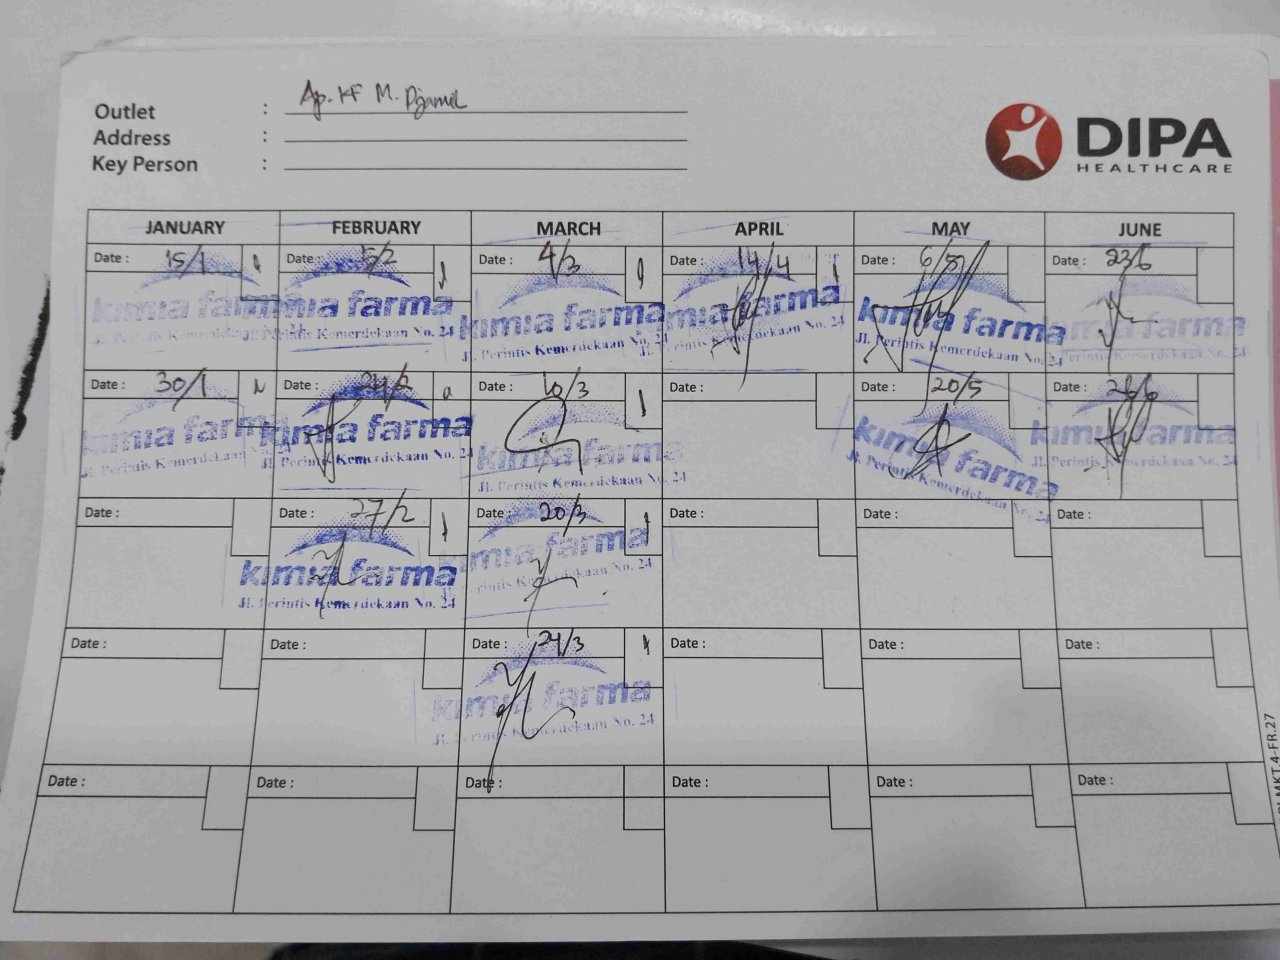 Outlet : Ap. KF M. Djamil
Address :
Key Person :
DIPA
HEALTHCARE
JANUARY FEBRUARY MARCH APRIL MAY JUNE
Date : 15/1 Date : 5/2 Date : 4/3 Date : 14/4 Date : 6/5 Date : 23/6
kimia farma kimia farma kimia farma kimia farma kimia farma kimia farma
Jl. Perintis Kemerdekaan Jl. Perintis Kemerdekaan No. 24 Jl. Perintis Kemerdekaan No. 24 Jl. Perintis Kemerdekaan No. 24 Jl. Perintis Kemerdekaan No. 24 Jl. Perintis Kemerdekaan No. 24
Date : 30/1 Date : 24/2 Date : 10/3 Date : Date : 20/5 Date : 26/6
kimia farma kimia farma kimia farma kimia farma kimia farma
Jl. Perintis Kemerdekaan Jl. Perintis Kemerdekaan No. 24 Jl. Perintis Kemerdekaan No. 24 Jl. Perintis Kemerdekaan No. 24 Jl. Perintis Kemerdekaan No. 24
Date : Date : 27/2 Date : 20/3 Date : Date : Date :
kimia farma kimia farma
Jl. Perintis Kemerdekaan No. 24 Jl. Perintis Kemerdekaan No. 24
Date : Date : Date : 24/3 Date : Date : Date :
kimia farma
Jl. Perintis Kemerdekaan No. 24
Date : Date : Date : Date : Date : Date :
MKT.4-FR.27